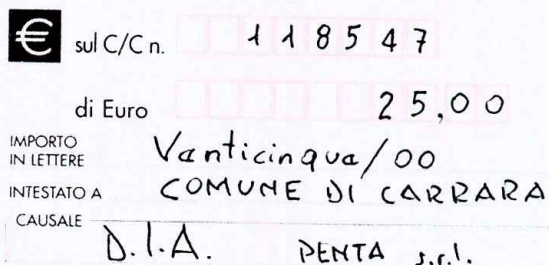 € sul C/C n. 118547
di Euro 25,00
IMPORTO IN LETTERE Vanticinque/00
INTESTATO A COMUNE DI CARRARA
CAUSALE
D.I.A. PENTA s.r.l.